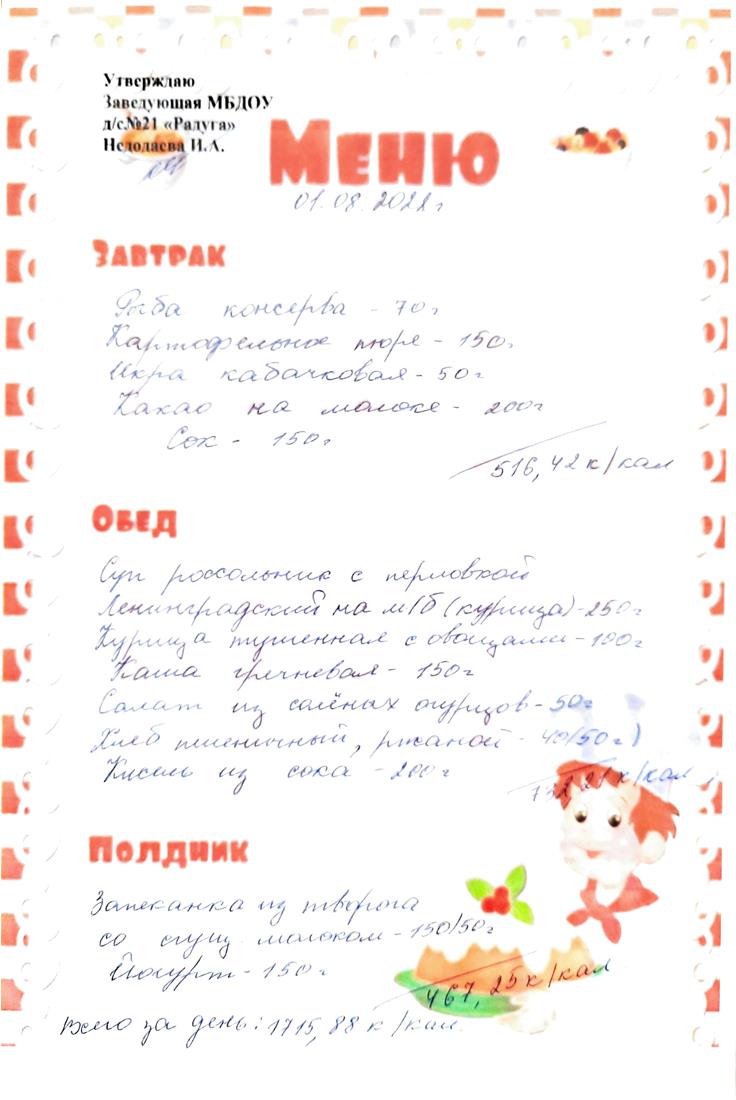 Утверждаю
Заведующая МБДОУ
д/с№21 «Радуга»
Недодаева И.А.
Меню
01.08.2022г
Завтрак
Рыба консерва - 70г
Картофельное пюре - 150г
Икра кабачковая - 50г
Какао на молоке - 200г
Сок - 150г
516,42 к/кал
Обед
Суп россольник с перловкой
Ленинградский на м/б (курица) - 250г
Курица тушенная с овощами - 100г
Каша гречневая - 150г
Салат из солёных огурцов - 50г
Хлеб пшеничный, ржаной - 40/50г)
Кисель из сока - 200г
732,21 к/кал
Полдник
Запеканка из творога
со сгущ. молоком - 150/50г
Йогурт - 150г
467,25 к/кал
Всего за день: 1715,88 к/кал